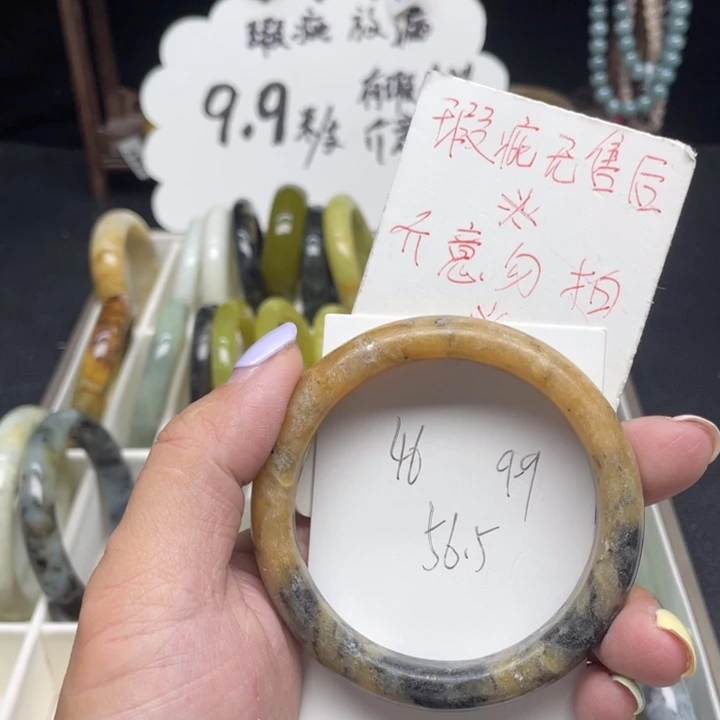 瑕疵放漏
9.9
瑕疵无售后
介意勿拍
46 9.9
56.5